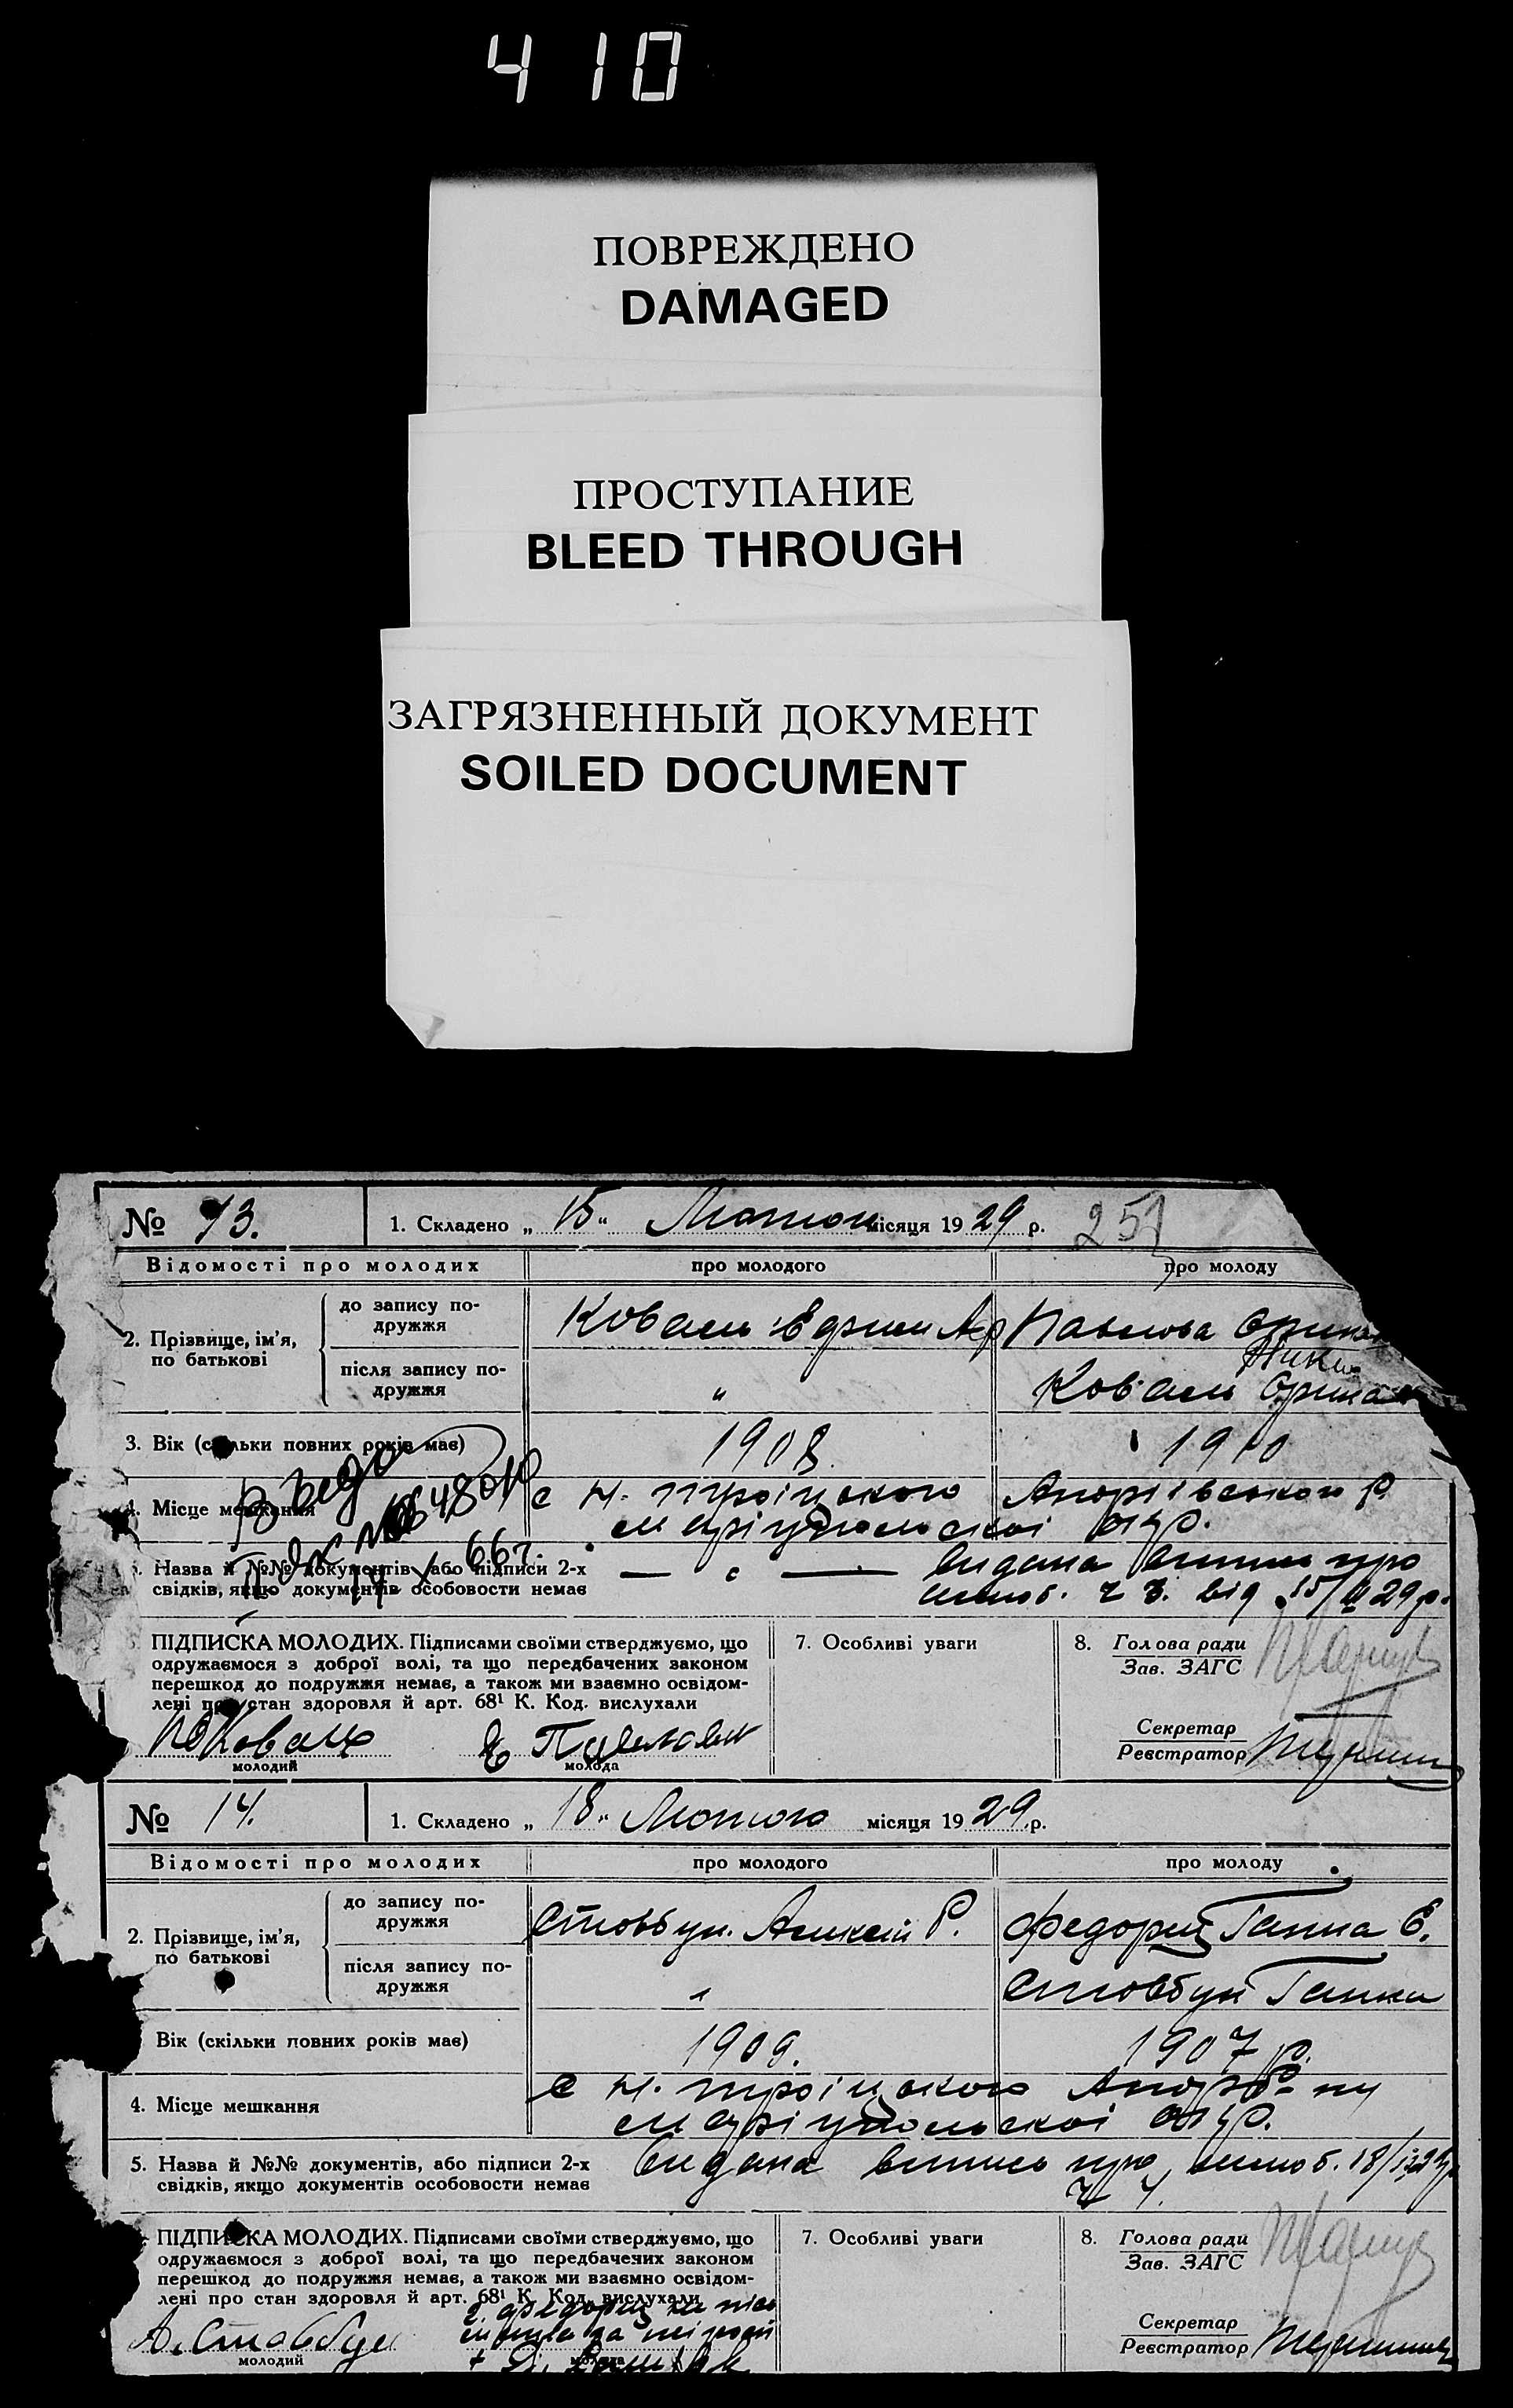 410
ПОВРЕЖДЕНО
DAMAGED
ПРОСТУПАНИЕ
BLEED THROUGH
ЗАГРЯЗНЕННЫЙ ДОКУМЕНТ
SOILED DOCUMENT
№ 13. 1. Складено „ 15 “ Лютого місяця 1929 р. 251
Відомості про молодих про молодого про молоду
2. Прізвище, ім'я, по батькові
до запису подружжя Коваль Павлова
після запису подружжя " Коваль Орина
3. Вік (скільки повних років має) 1908. 1910
4. Місце мешкання с Н. Троіцького Андріівського р
маріупольскоі окр.
5. Назва й №№ документів, або підписи 2-х — " — видана випись про
свідків, якщо документів особовости немає шлюб. ч 3. від 15/II 29 р.
6. ПІДПИСКА МОЛОДИХ. Підписами своїми стверджуємо, що
одружаємося з доброї волі, та що передбачених законом
перешкод до подружжя немає, а також ми взаємно освідом-
лені про стан здоровля й арт. 68¹ К. Код. вислухали
7. Особливі уваги
8. Голова ради
Зав. ЗАГС
Секретар
Реєстратор
Коваль
молодий молода
№ 14. 1. Складено „ 18 “ Лютого місяця 1929 р.
Відомості про молодих про молодого про молоду
2. Прізвище, ім'я, по батькові
до запису подружжя Стовбун Алексій Р. Федорец Ганна Е.
після запису подружжя " Стовбун Ганна
Вік (скільки повних років має) 1909. 1907 р.
4. Місце мешкання с Н. Троіцького
маріупольскоі окр.
5. Назва й №№ документів, або підписи 2-х Видана випись про шлюб.
свідків, якщо документів особовости немає ч 4.
ПІДПИСКА МОЛОДИХ. Підписами своїми стверджуємо, що
одружаємося з доброї волі, та що передбачених законом
перешкод до подружжя немає, а також ми взаємно освідом-
лені про стан здоровля й арт. 68¹ К. Код. вислухали
7. Особливі уваги
8. Голова ради
Зав. ЗАГС
Секретар
Реєстратор
А. Стовбун
молодий молода